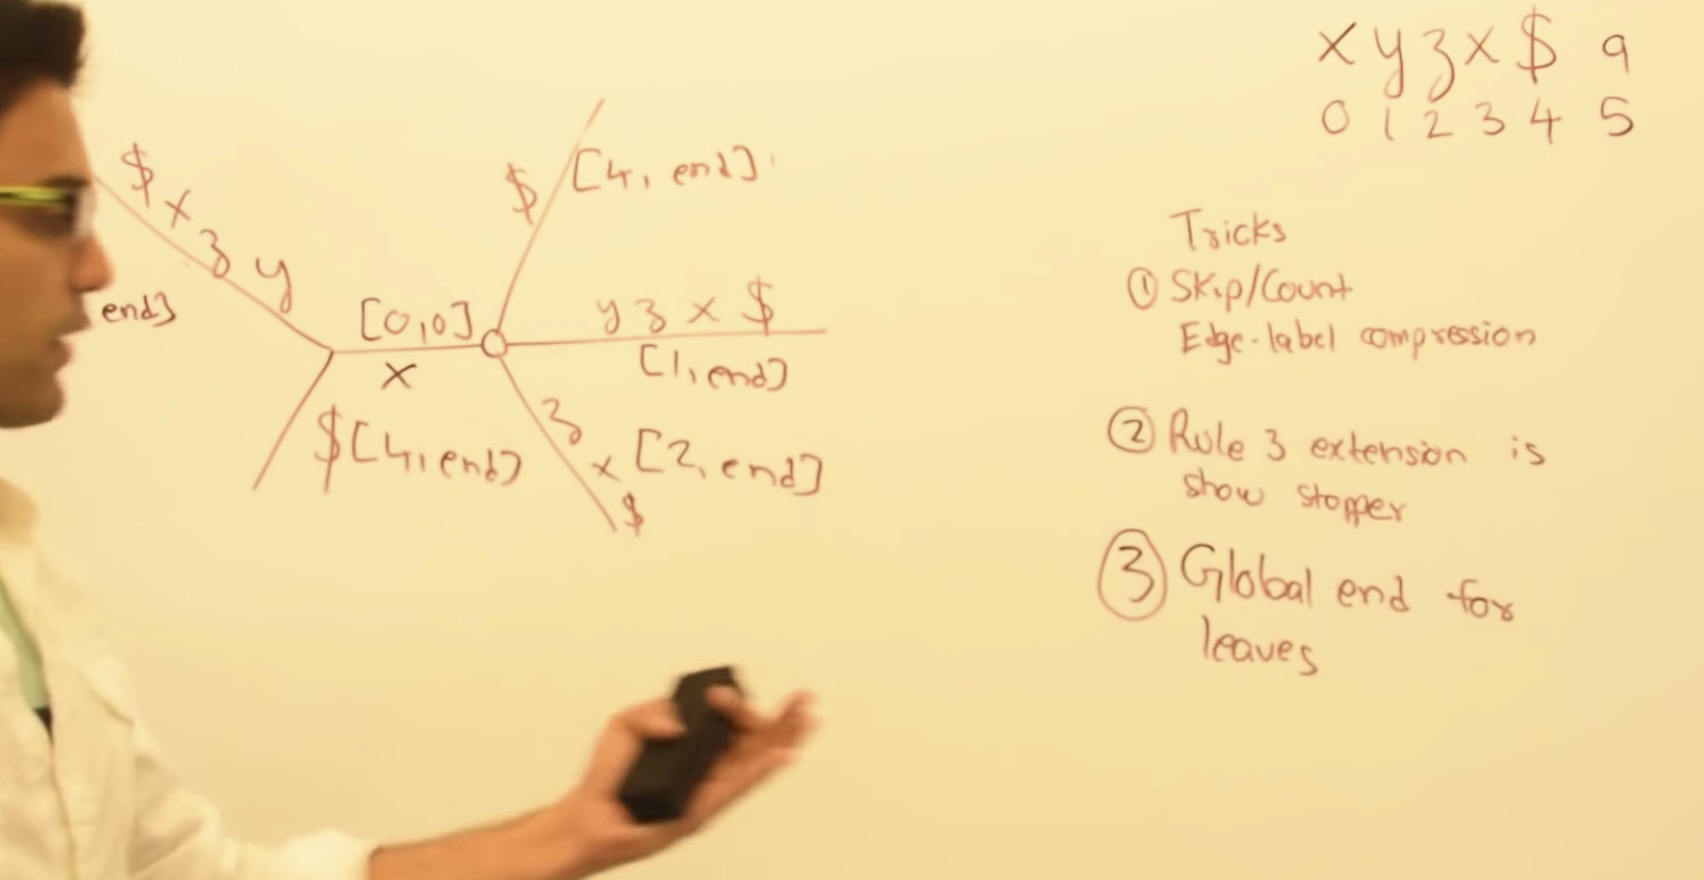 x y z x $ a
0 1 2 3 4 5
$ x z y
end]
[0,0]
x
$ [4, end]
$ [4, end]
y z x $
[1, end]
z x $ [2, end]
Tricks
① Skip/Count
Edge-label compression
② Rule 3 extension is
show stopper
③ Global end for
leaves